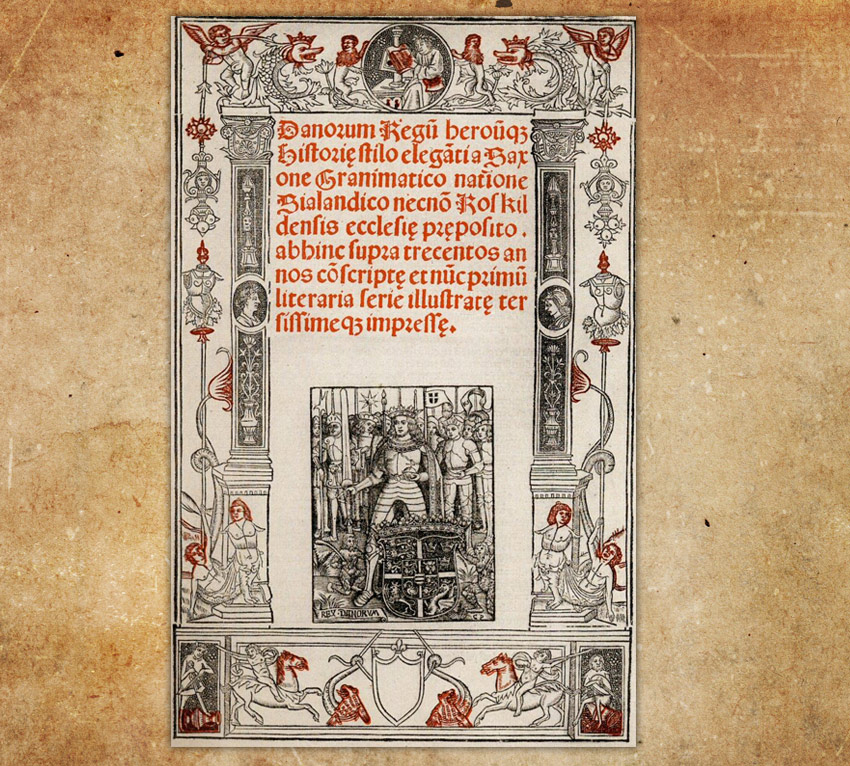 Danorum Regū heroūqꝫ
Historię stilo elegāti a Sax
one Grammatico natione
Sialandico necnō Roskil
densis ecclesię pręposito .
abhinc supra trecentos an
nos cōscriptę et nūc primū
literaria serie illustratę ter
sissimeqꝫ impressę.
REX DANORVM